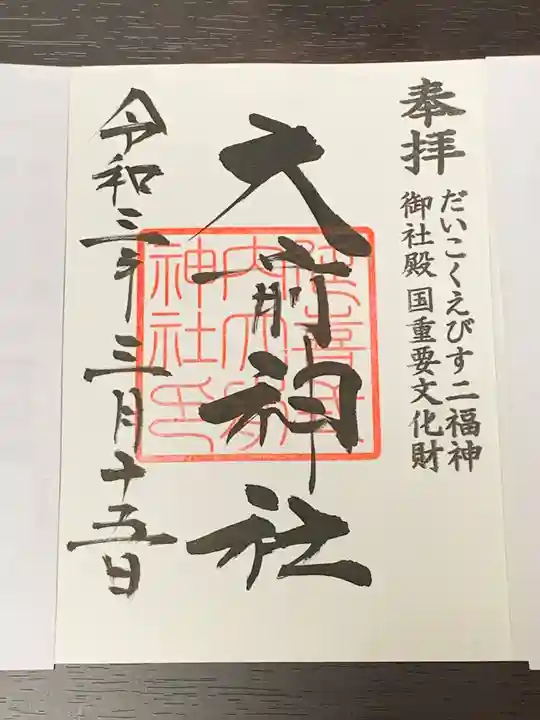 奉拝
だいこくえびす二福神
御社殿 国重要文化財
大前神社
令和三年三月十五日